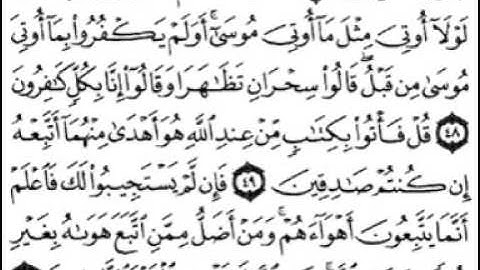 لَوْلَآ أُوتِىَ مِثْلَ مَآ أُوتِىَ مُوسَىٰٓ ۚ أَوَلَمْ يَكْفُرُوا۟ بِمَآ أُوتِىَ
مُوسَىٰ مِن قَبْلُ ۖ قَالُوا۟ سِحْرَانِ تَظَٰهَرَا وَقَالُوٓا۟ إِنَّا بِكُلٍّ كَٰفِرُونَ
﴿٤٨﴾ قُلْ فَأْتُوا۟ بِكِتَٰبٍ مِّنْ عِندِ ٱللَّهِ هُوَ أَهْدَىٰ مِنْهُمَآ أَتَّبِعْهُ
إِن كُنتُمْ صَٰدِقِينَ ﴿٤٩﴾ فَإِن لَّمْ يَسْتَجِيبُوا۟ لَكَ فَٱعْلَمْ
أَنَّمَا يَتَّبِعُونَ أَهْوَآءَهُمْ ۚ وَمَنْ أَضَلُّ مِمَّنِ ٱتَّبَعَ هَوَىٰهُ بِغَيْرِ